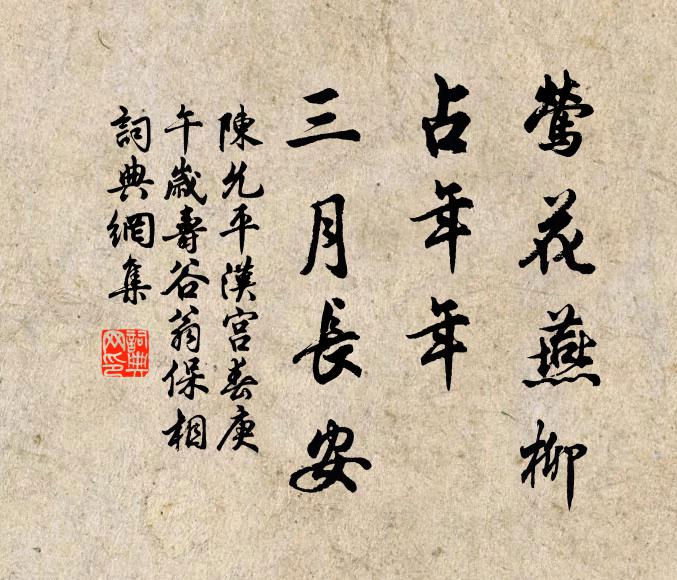 鶯花燕柳
占年年
三月長安
陳允平漢宮春庚
午歲壽谷翁保相
詞典網集
詞典
网印